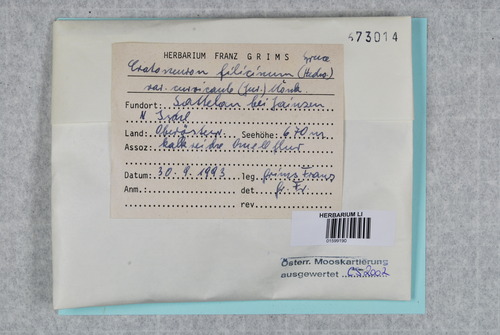 673014
HERBARIUM FRANZ GRIMS
Cratoneuron filicinum (Hedw.) Spruce
var. curvicaule (Jur.) Mönk.
Fundort: Sattelau bei
N
Land: Oberösterr. Seehöhe: 670 m
Assoz: kalkreiche Quellflur
Datum: 30.9.1993 leg. Grims Franz
Anm.: det. Gr. Fr.
rev.
HERBARIUM LI
01599190
Österr. Mooskartierung
ausgewertet CS2002